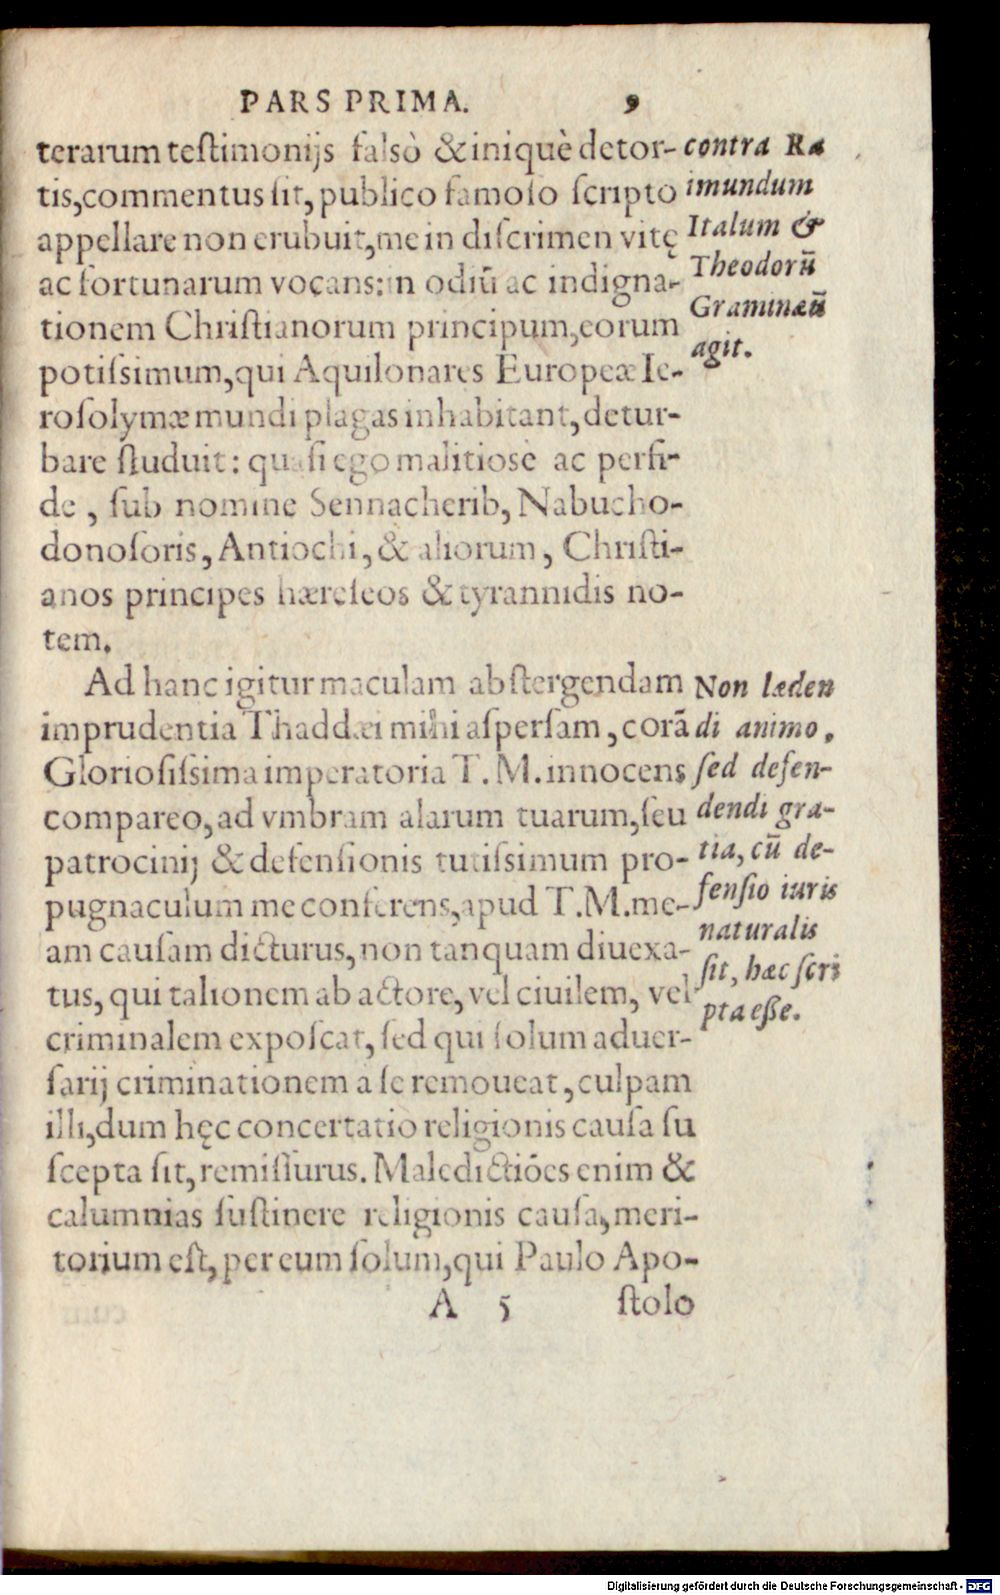 PARS PRIMA. 9
terarum teſtimonijs falsò & iniquè detor-
tis, commentus ſit, publico famoſo ſcripto
appellare non erubuit, me in diſcrimen vitę
ac fortunarum vocans: in odiũ ac indigna-
tionem Chriſtianorum principum, eorum
potiſsimum, qui Aquilonares Europeæ Ie-
roſolymæ mundi plagas inhabitant, detur-
bare ſtuduit: quaſi ego malitiosè ac perfi-
de, ſub nomine Sennacherib, Nabucho-
donoſoris, Antiochi, & aliorum, Chriſti-
anos principes hæreſeos & tyrannidis no-
tem.
contra Ra
imundum
Italum &
Theodorũ
Graminæũ
agit.
Ad hanc igitur maculam abſtergendam
imprudentia Thaddæi mihi aſperſam, corã
Glorioſiſsima imperatoria T. M. innocens
compareo, ad vmbram alarum tuarum, ſeu
patrocinij & defenſionis tutiſsimum pro-
pugnaculum me conferens, apud T. M. me-
am cauſam dicturus, non tanquam diuexa-
tus, qui talionem ab actore, vel ciuilem, vel
criminalem expoſcat, ſed qui ſolum aduer-
ſarij criminationem a ſe remoueat, culpam
illi, dum hęc concertatio religionis cauſa ſu
ſcepta ſit, remiſſurus. Maledictiões enim &
calumnias ſuſtinere religionis cauſa, meri-
torium eſt, per eum ſolum, qui Paulo Apo-
Non læden
di animo,
ſed defen-
dendi gra-
tia, cũ de-
fenſio iuris
naturalis
ſit, hæc ſcri
pta eſſe.
A 5 ſtolo
Digitalisierung gefördert durch die Deutsche Forschungsgemeinschaft - DFG